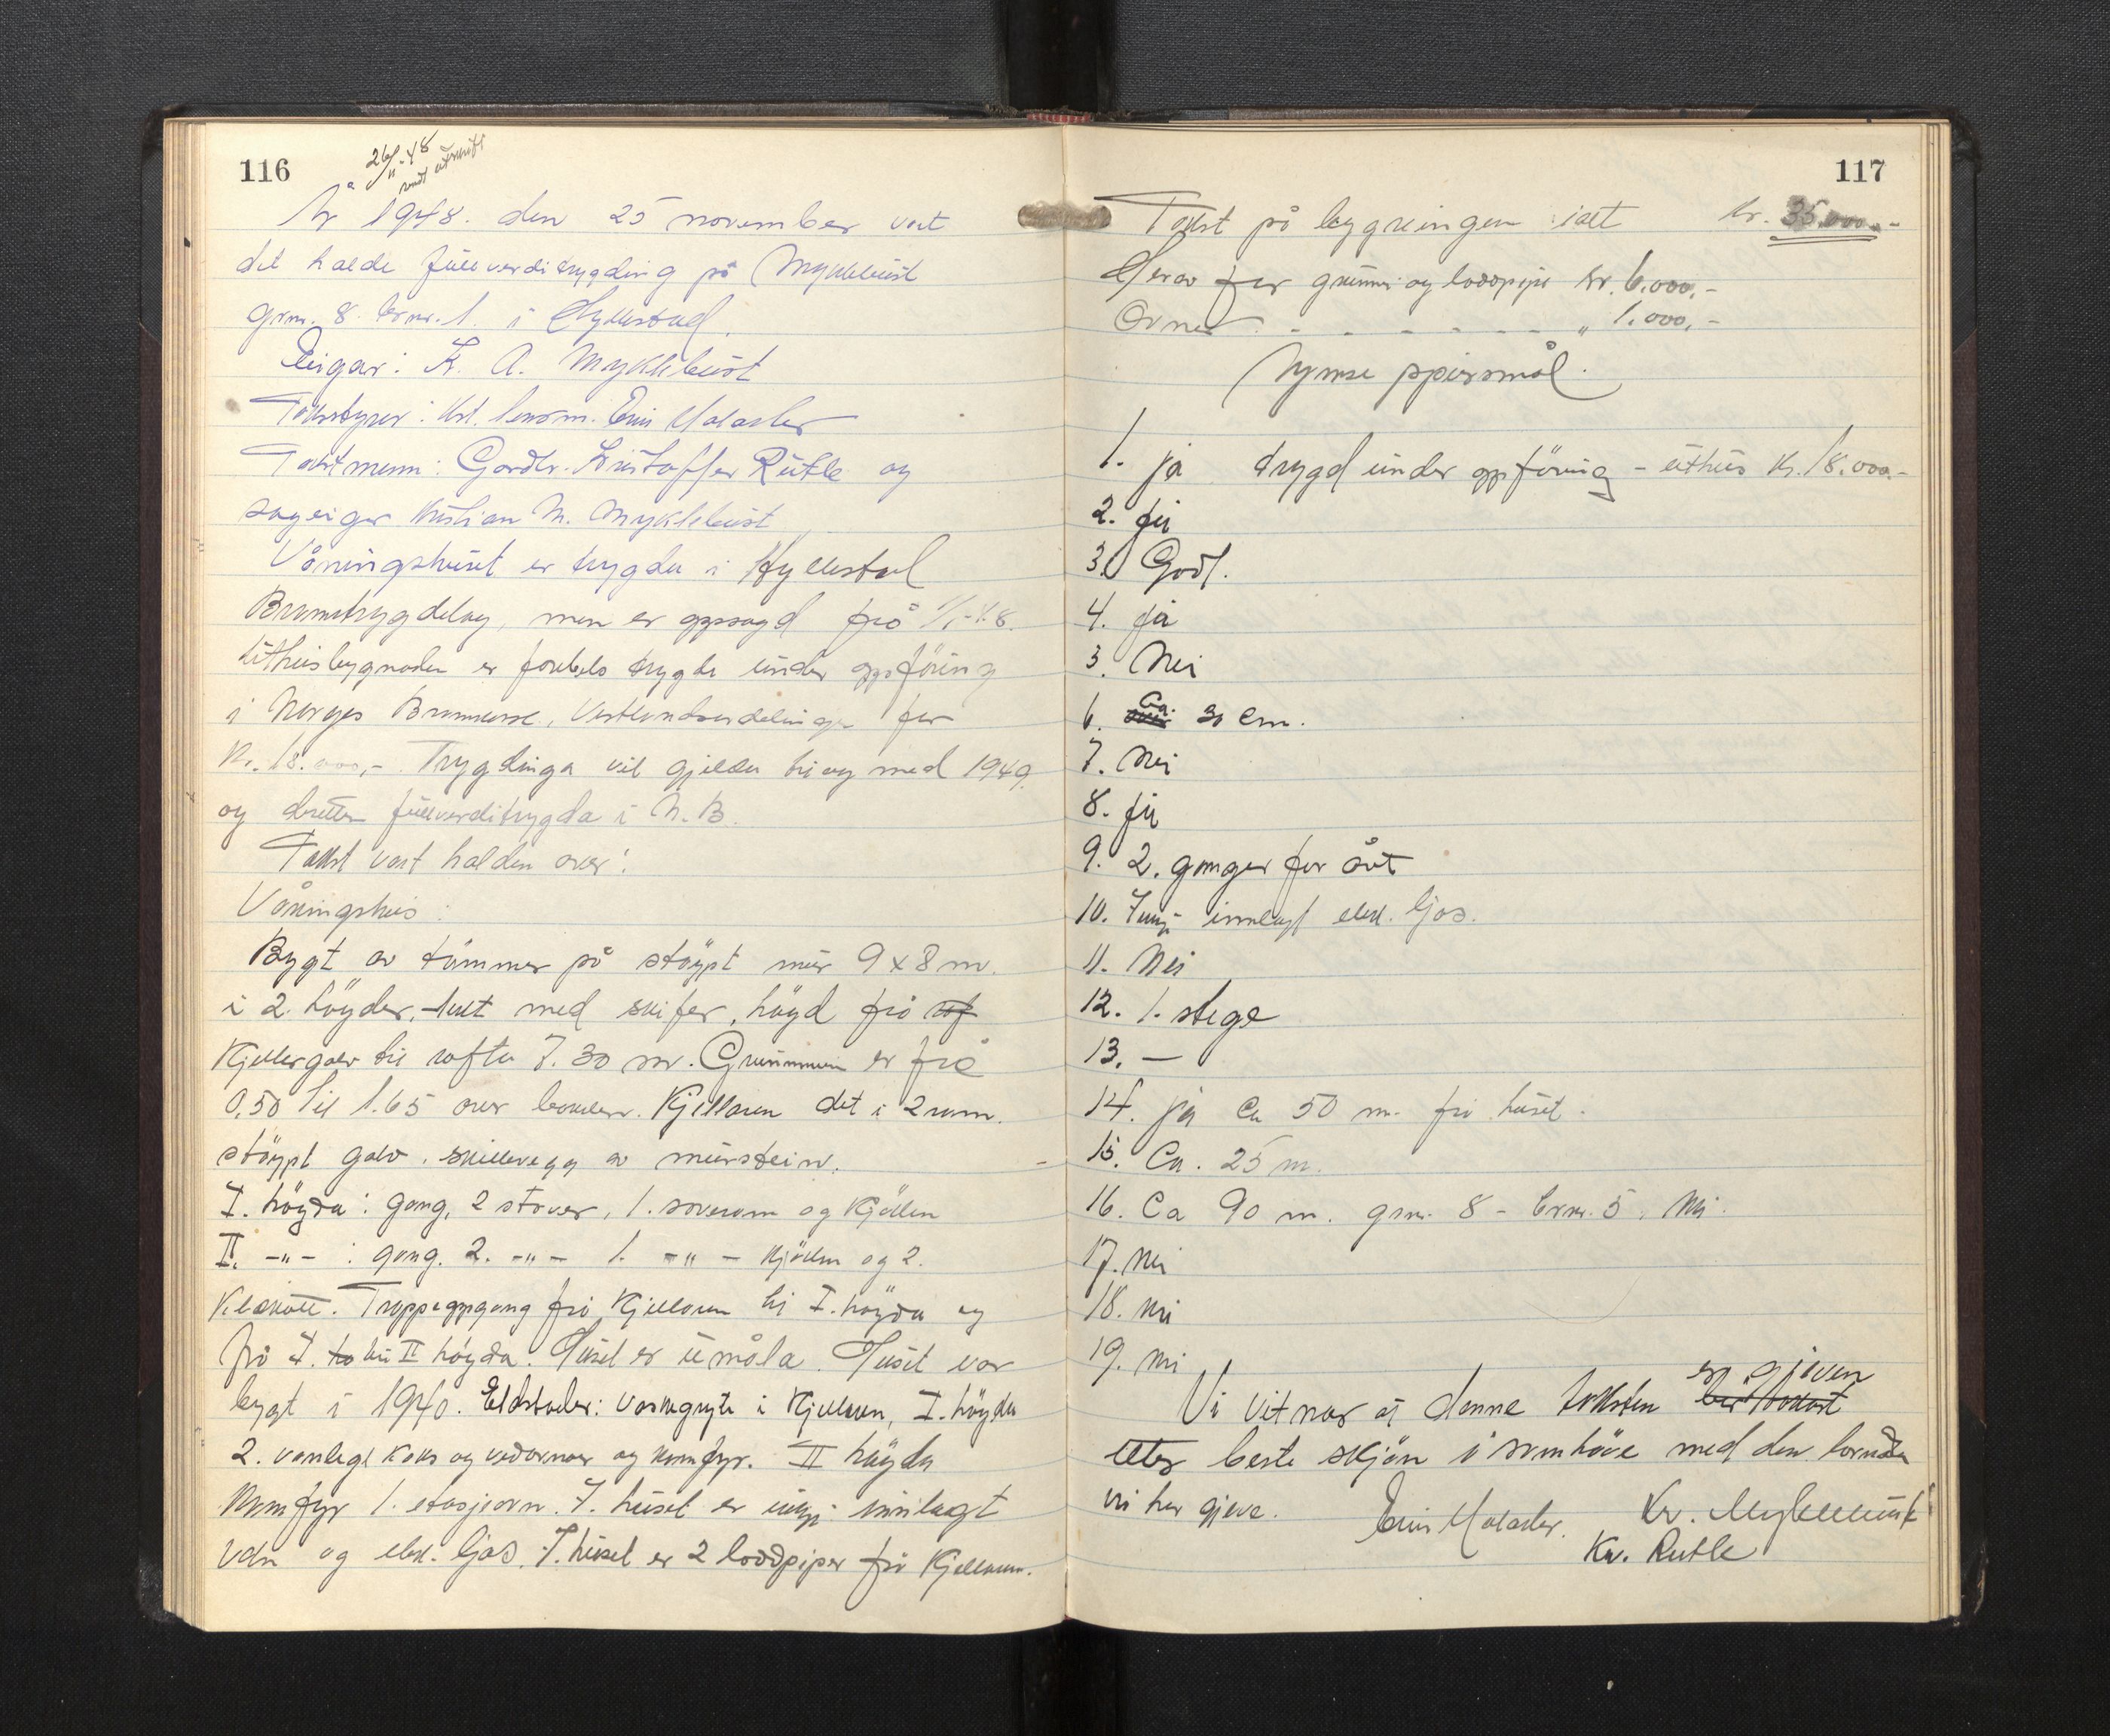 116
26/11-48
sendt utskrift
År 1948. den 25 november vart
det halde fullverditrygding på Myklebust
grnr. 8. brnr. 1. i Hyllestad.
Eigar: K. A. Myklebust
Takststyrer: Kst. lensm.
Takstmenn: Gardbr. Kristoffer Rutle og
sageigar Kristian N. Myklebust
Våningshuset er trygda i Hyllestad
Branntrygdelag, men er oppsagd frå 1/1-48.
Uthusbygnaden er førebels trygda under oppföring
i Norges Brannkasse, Vestlandsavdelinga for
Kr. 18.000,- Trygdinga vil gjelda til og med 1949.
og deretter fullverditrygda i N. B.
Takst vart halden over:
Våningshus:
Bygt av tömmer på stöypt mur 9 x 8 m.
i 2. högder, tekt med skifer, högd frå
Kjellergolv til rafta 7.30 m. Grunnmuren er frå
0,50 til 1.65 over bakken. Kjellaren delt i 2 rum.
stöypt golv. skillevegg av murstein.
I. högda: gang, 2 stover, 1. soverom og Kjöken
II. -"- : gang. 2. -"- 1. -"- Kjöken og 2.
Kleskott. Trappeoppgang frå Kjellaren til I. högda og
frå I. ho til II högda. Huset er umåla. Huset var
bygt i 1940. Eldstader: Vaskegryte i Kjellaren, I. högda
2. vanlege koks og vedomnar og komfyr. II högda
Komfyr 1. etasjeovn. I. huset er innlagt
vatn og elek. ljos. I. huset er 2 loddpiper frå Kjellaren.
117
Takst på bygningen ialt Kr. 35.000.-
Herav for grunnmur og loddpipe Kr. 6.000,-
Ovner - - - - - - - " 1.000,-
Ymse spursmål.
1. ja trygd under oppföring - uthus Kr. 18.000.-
2. ja
3. Godt.
4. ja
5. Nei
6. Ca. 30 cm.
7. Nei
8. ja
9. 2. ganger for året
10. innlagt elek. ljos.
11. Nei
12. 1. stege
13. —
14. ja Ca 50 m. frå huset.
15. Ca. 25 m.
16. Ca 90 m. grnr. 8 - brnr. 5. Nei.
17. Nei
18. Nei
19. Nei
Vi vitnar at denne taksten er gjeven
etter beste skjön i samhöve med den lovnad
vi har gjeve.
Kr. Myklebust
Kr. Rutle